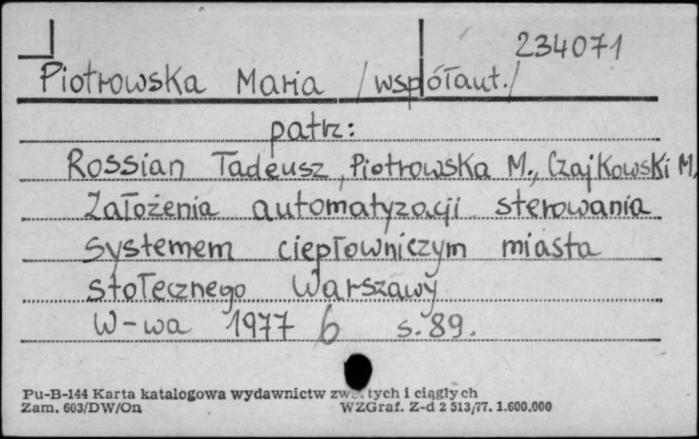 234071
Piotrowska Maria /współaut./
patrz:
Rossian Tadeusz, Piotrowska M., Czajkowski M,
Założenia automatyzacji sterowania
systemem ciepłowniczym miasta
stołecznego Warszawy
W-wa 1977 6 s. 89.
Pu-B-144 Karta katalogowa wydawnictw tych i ciągłych
Zam. 603/DW/On WZGraf. Z-d 2 513/77. 1.600.000